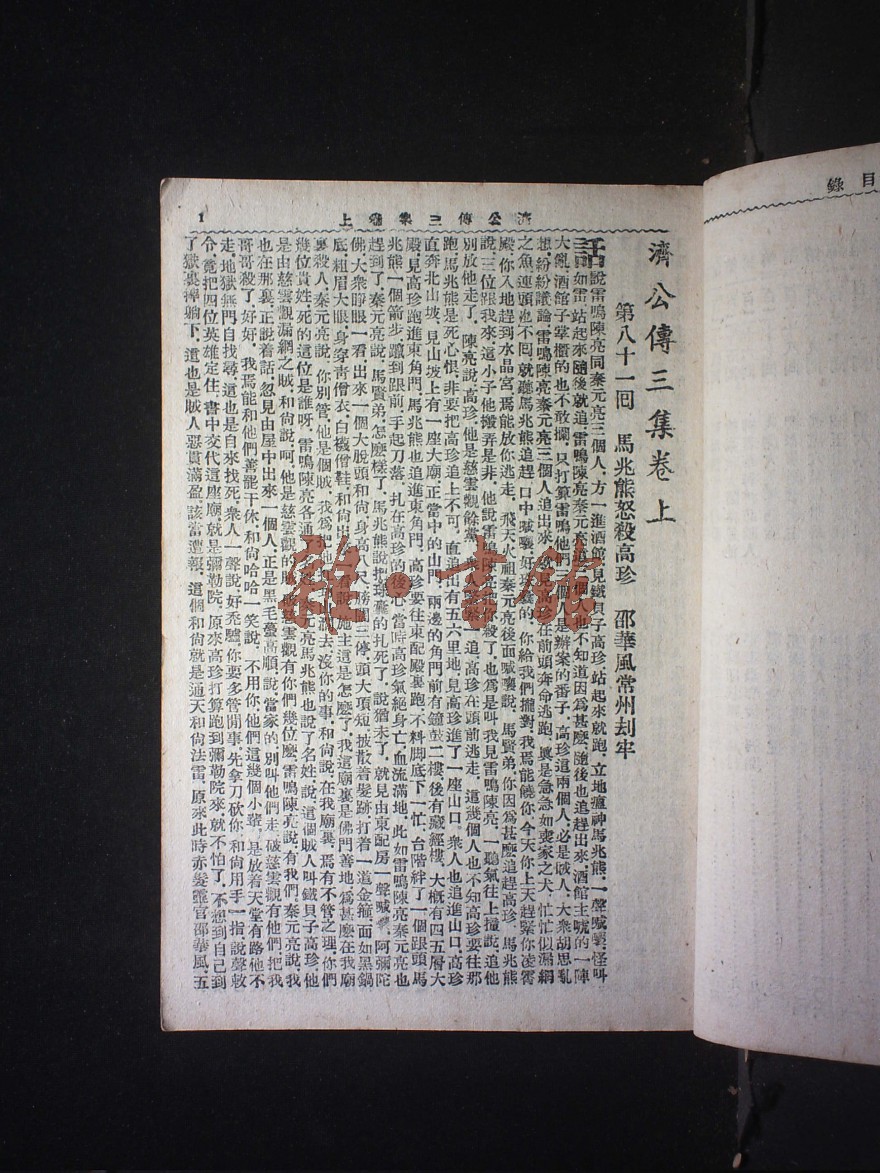 目錄
濟公傳三集卷上
1
濟公傳三集卷上
第八十一回 馬兆熊怒殺高珍 邵華風常州刦牢
話說雷鳴陳亮同秦元亮三個人方一進酒館見鐵貝子高珍站起來就跑立地瘟神馬兆熊一聲喊嚷怪叫
如雷站起來隨後就追雷鳴陳亮秦元亮這三個人也不知道因爲甚麼隨後也追趕出來酒館主唬的一陣
大亂酒館子掌櫃的也不敢攔只打算雷鳴他們三個人是辦案的番子高珍這兩個人必是賊人大衆胡思亂
想紛紛議論雷鳴陳亮秦元亮三個人追出來就見高珍在前頭奔命逃跑眞是急急如喪家之犬忙忙似漏網
之魚連頭也不回就聽馬兆熊追趕口中喊嚷好高珍你給我們攏對我焉能饒你今天你上天趕緊你凌霄
殿你入地趕到水晶宮焉能放你逃走飛天火祖秦元亮後面喊嚷說馬賢弟你因爲甚麼追趕高珍馬兆熊
說三位跟我來這小子他搬弄是非他說雷鳴陳亮把你殺了也爲是叫我見雷鳴陳亮一聽氣往上撞說追他
別放他走了陳亮說高珍他是慈雲觀餘黨衆人緊緊一追高珍在頭前逃走這幾個人也不知高珍要往那
跑馬兆熊是死心恨非要把高珍追上不可直追出有五六里地見高珍進了一座山口衆人也追進山口高珍
直奔北山坡見山坡上有一座大廟正當中的山門兩邊的角門前有鐘鼓二樓後有藏經樓大概有四五層大
殿見高珍跑進東角門馬兆熊也追進東角門高珍要往東配殿裏跑不料脚底下一忙台階絆了一個跟頭馬
兆熊一個箭步躥到跟前手起刀落扎在高珍的後心當時高珍氣絕身亡血流滿地此如雷鳴陳亮秦元亮也
趕到了秦元亮說馬賢弟怎麼樣了馬兆熊說把球囊的扎死了說猶未了就見由東配房一聲喊嚷阿彌陀
佛大衆睜眼一看出來一個大脫頭和尙身高八尺膀濶三停頭大項短披散着髮跡打着一道金箍面如黑鍋
底粗眉大眼身穿靑僧衣白襪僧鞋和尙出來一看說施主這是怎麼了我這廟裏是佛門善地爲甚麼在我廟
裏殺人秦元亮說你別管他是個賊我爲把他扔到山澗去沒你的事和尙說在我廟裏焉有不管之理你們
幾位貴姓死的這位是誰呀雷鳴陳亮各通了名姓秦元亮馬兆熊也說了名姓說這個賊人叫鐵貝子高珍他
是由慈雲觀漏網之賊和尙說呵他是慈雲觀的賊破慈雲觀有你們幾位麼雷鳴陳亮說有我們秦元亮說我
也在那裏正說着話忽見由屋中出來一個人正是黑毛蠆高順說當家的別叫他們走破慈雲觀有他們把我
哥哥殺了好好我焉能和他們善罷干休和尙哈哈一笑說不用你他們這幾個小輩是放着天堂有路他不
走地獄無門自找尋這也是自來找死衆人一聲說好禿驢你要多管閒事先拿刀砍你和尙用手一指說聲敕
令竟把四位英雄定住書中交代這座廟就是彌勒院原來高珍打算跑到彌勒院來就不怕了不想到自己到
了獄裏摔躺下這也是賊人惡貫滿盈該當遭報這個和尙就是通天和尙法雷原來此時赤髮靈官邵華風五
雜·書館